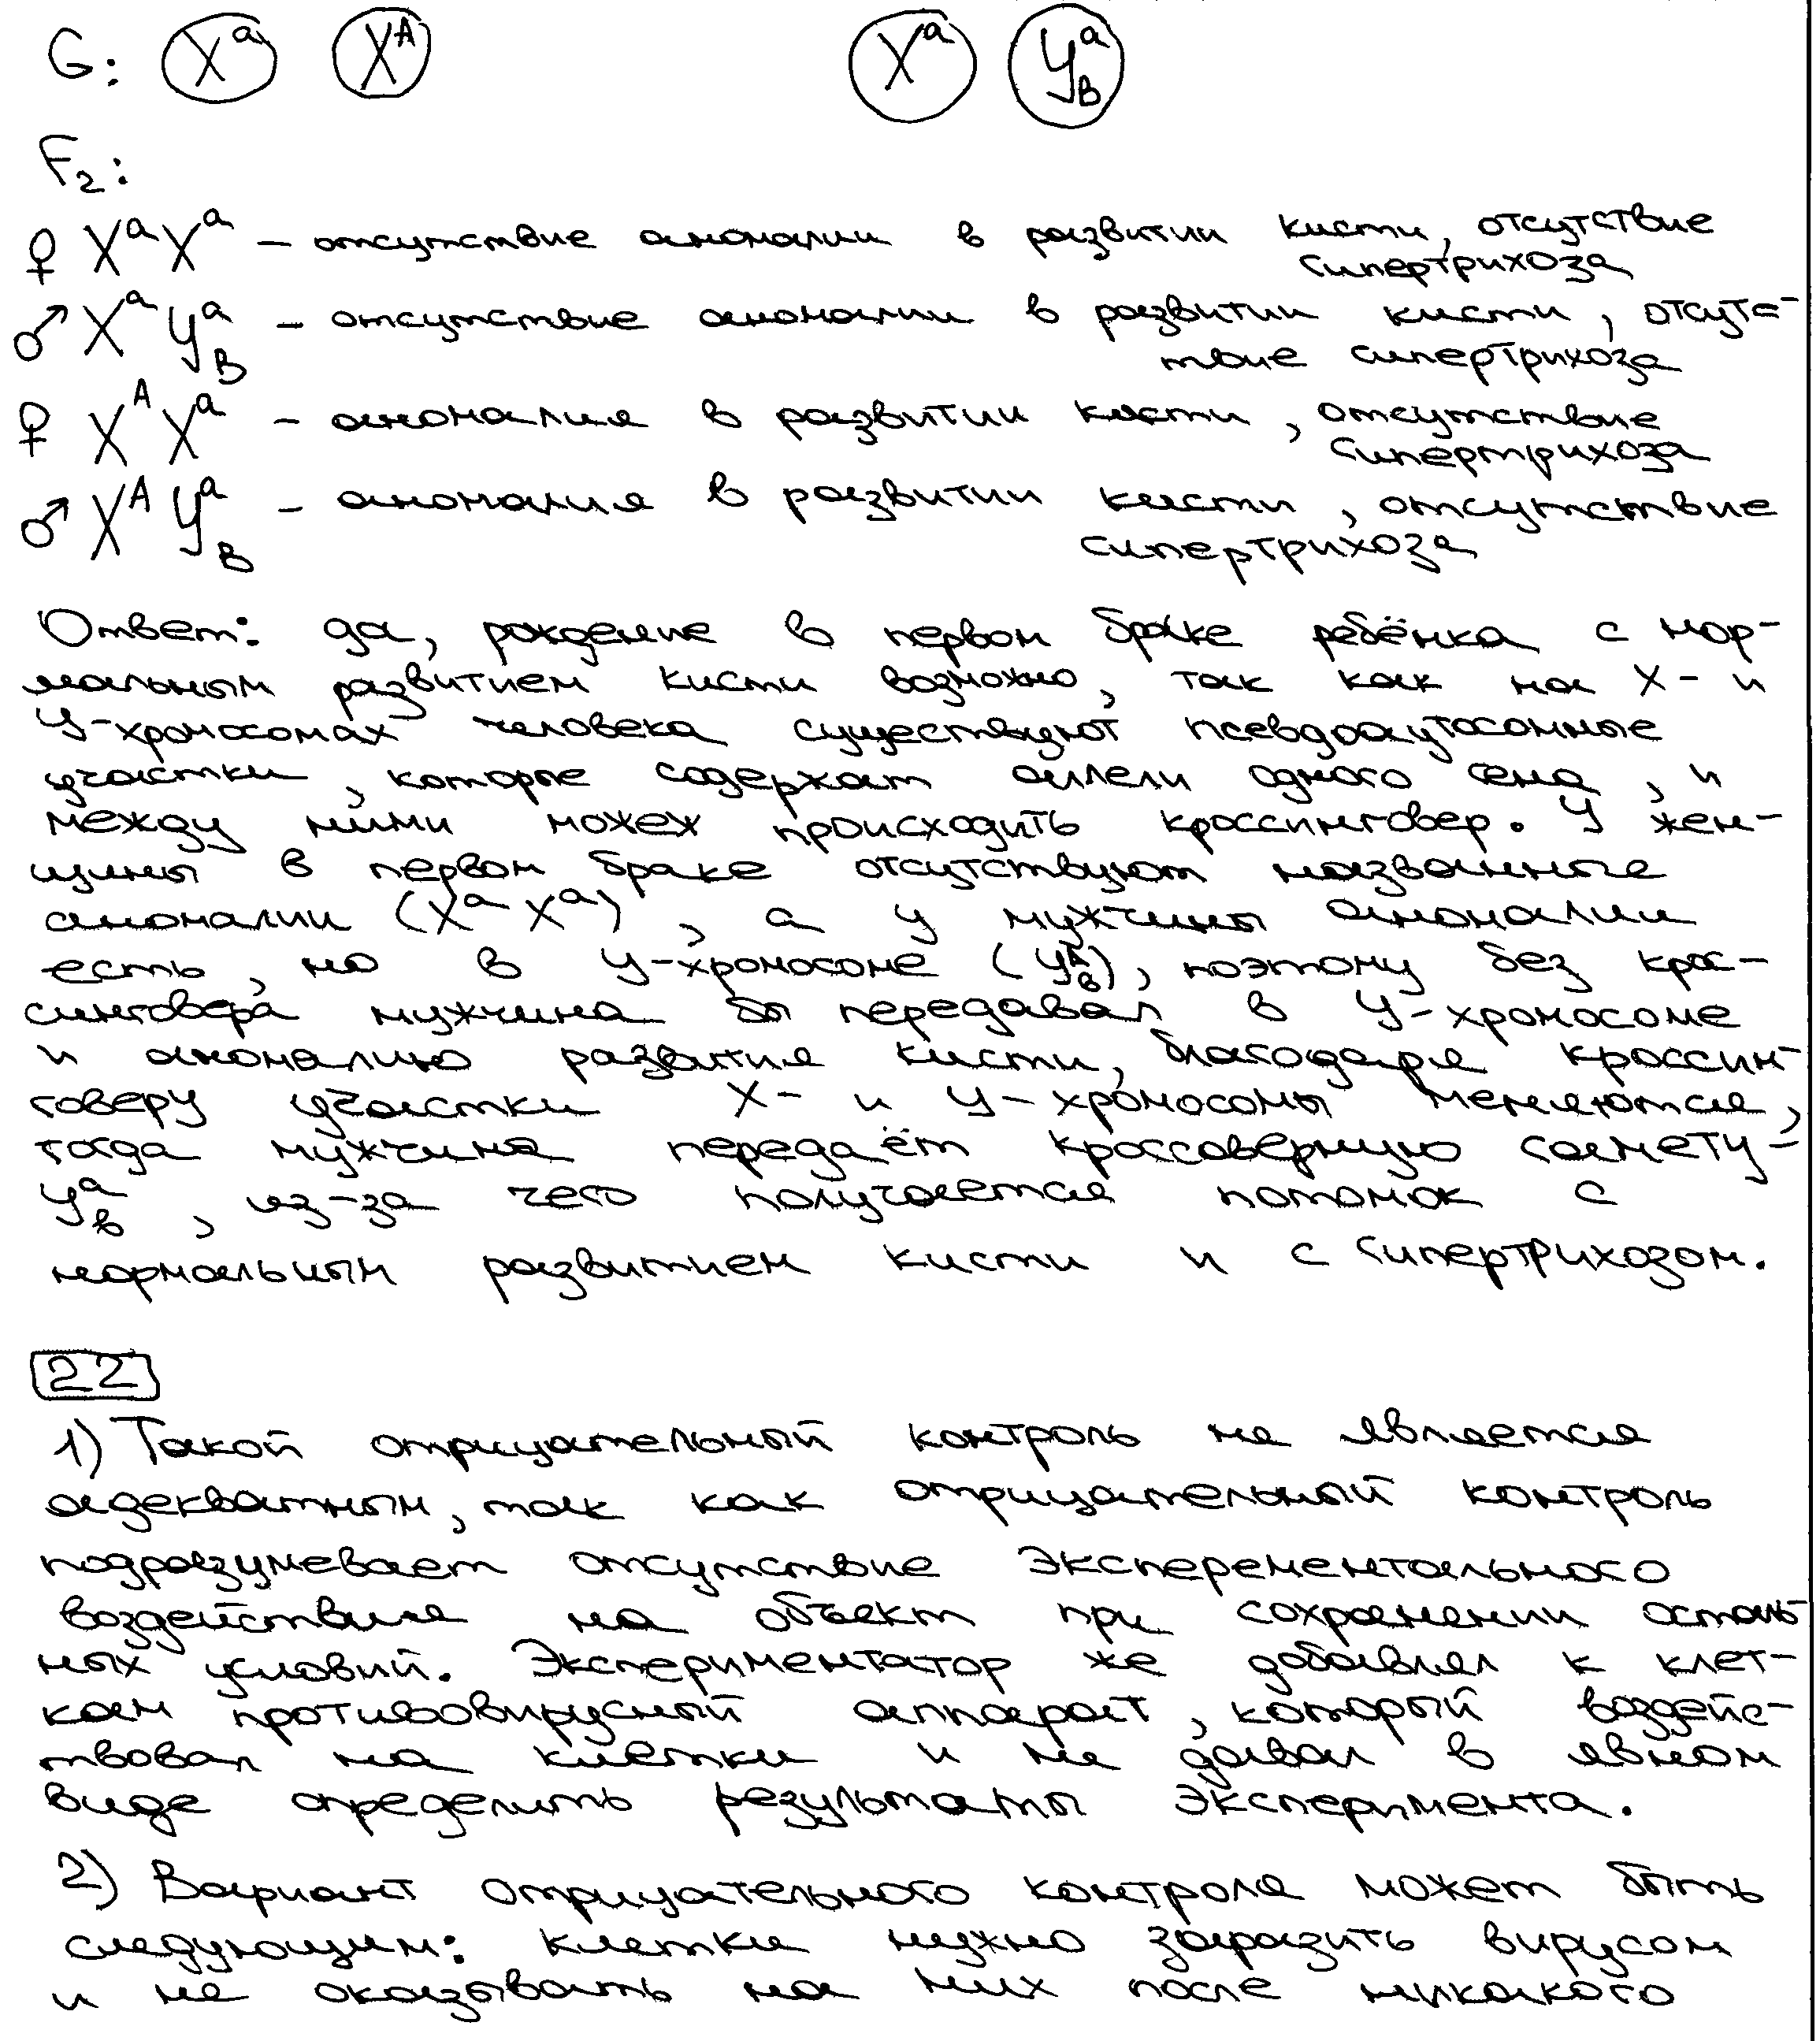 G: X^a X^A X^a У^a_В
F₂:
♀ X^a X^a – отсутствие аномалии в развитии кисти, отсутствие
гипертрихоза
♂ X^a У^a_В – отсутствие аномалии в развитии кисти, отсутс-
твие гипертрихоза
♀ X^A X^a – аномалия в развитии кисти, отсутствие
гипертрихоза
♂ X^A У^a_В – аномалия в развитии кисти, отсутствие
гипертрихоза
Ответ: да, рождение в первом браке ребёнка с нор-
мальным развитием кисти возможно, так как на X- и
У-хромосомах человека существуют псевдоаутосомные
участки, которые содержат аллели одного гена, и
между ними можеж происходить кроссинговер. У жен-
щины в первом браке отсутствуют названные
аномалии (X^a X^a), а у мужчины аномалии
есть, но в У-хромосоме (У^A_в), поэтому без крос-
синговера мужчина бы передавал в У-хромосоме
и аномалию развития кисти, благодаря кроссин-
говеру участки X- и У-хромосомы меняются,
тогда мужчина передаёт кроссоверную гамету -
У^a_в, из-за чего получается потомок с
нормальным развитием кисти и с гипертрихозом.
22
1) Такой отрицательный контроль не является
адекватным, так как отрицательный контроль
подразумевает отсутствие эксперементального
воздействия на объект при сохранении осталь
ных условий. Экспериментатор же добавлял к клет-
кам противовирусный аппарат, который воздейс-
твовал на клетки и не давал в явном
виде определить результаты эксперимента.
2) Вариант отрицательного контроля может быть
следующим: клетки нужно заразить вирусом
и не оказывать на них после никакого